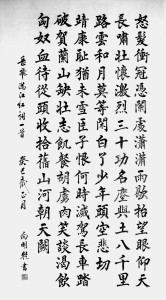 怒髮衝冠憑闌處瀟瀟雨歇抬望眼仰天
長嘯壯懷激烈三十功名塵與土八千里
路雲和月莫等閑白了少年頭空悲切
靖康恥猶未雪臣子恨何時滅駕長車踏
破賀蘭山缺壯志飢餐胡虜肉笑談渴飲
匈奴血待從頭收拾舊山河朝天闕
岳飛滿江紅詞一首 癸巳歲 月 書